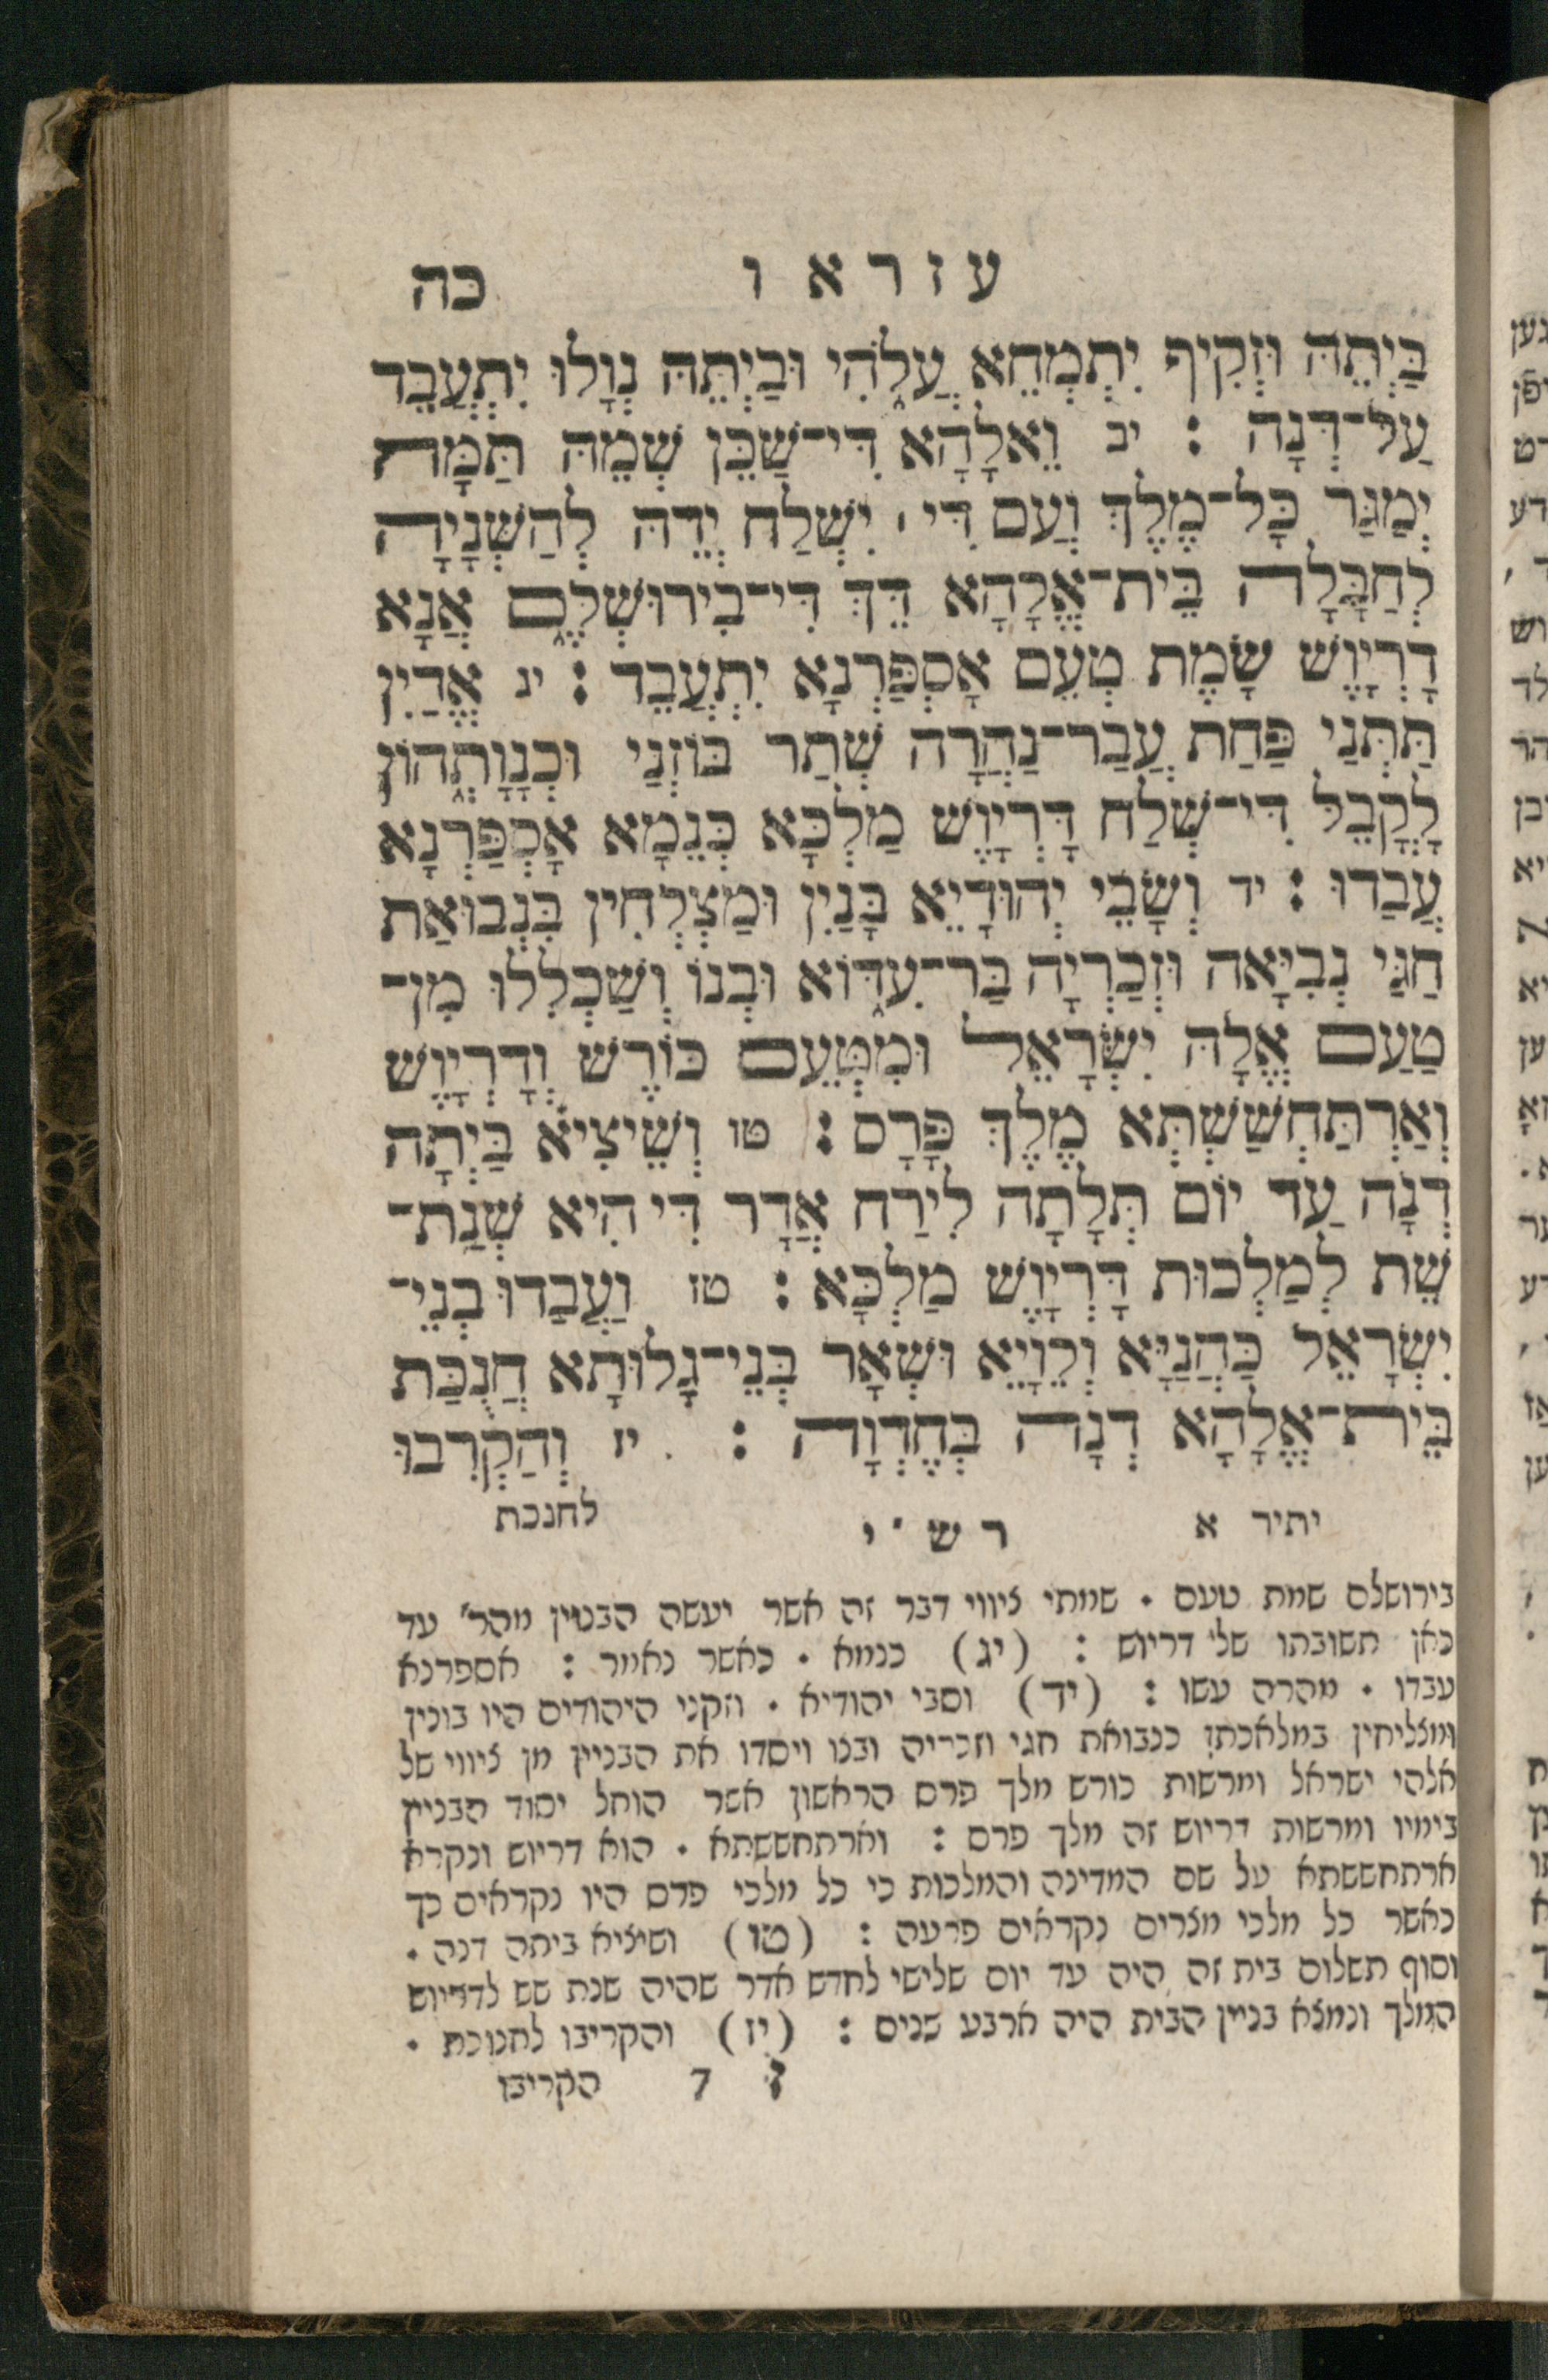 עזרא ו כה
בַּיְתֵהּ וּזְקִיף יִתְמְחֵא עֲלֹהִי וּבַיְתֵהּ נְוָלוּ יִתְעֲבֵד
עַל־דְּנָה : יב וֵאלָהָא דִּי־שַׁכֵּן שְׁמֵהּ תַּמָּה
יְמַגַּר כָּל־מֶלֶךְ וְעַם דִּי ׀ יִשְׁלַח יְדֵהּ לְהַשְׁנָיָה
לְחַבָּלָה בֵּית־אֱלָהָא דֵךְ דִּי־בִירוּשְׁלֶם אֲנָא
דָרְיָוֶשׁ שָׂמֶת טְעֵם אָסְפַּרְנָא יִתְעֲבֵד : יג אֱדַיִן
תַּתְּנַי פַּחַת עֲבַר־נַהֲרָה שְׁתַר בּוֹזְנַי וּכְנָוָתְהוֹן
לָקֳבֵל דִּי־שְׁלַח דָּרְיָוֶשׁ מַלְכָּא כְּנֵמָא אָסְפַּרְנָא
עֲבַדוּ : יד וְשָׂבֵי יְהוּדָיֵא בָּנַיִן וּמַצְלְחִין בִּנְבוּאַת
חַגַּי נְבִיָּאה וּזְכַרְיָה בַּר־עִדּוֹא וּבְנוֹ וְשַׁכְלִלוּ מִן־
טַעַם אֱלָהּ יִשְׂרָאֵל וּמִטְּעֵם כּוֹרֶשׁ וְדָרְיָוֶשׁ
וְאַרְתַּחְשַׁשְׂתְּא מֶלֶךְ פָּרָס : טו וְשֵׁיצִיא בַּיְתָה
דְנָה עַד יוֹם תְּלָתָה לִירַח אֲדָר דִּי הִיא שְׁנַת־
שֵׁת לְמַלְכוּת דָּרְיָוֶשׁ מַלְכָּא : טז וַעֲבַדוּ בְנֵי־
יִשְׂרָאֵל כָּהֲנַיָּא וְלֵוָיֵא וּשְׁאָר בְּנֵי־גָלוּתָא חֲנֻכַּת
בֵּית־אֱלָהָא דְנָה בְּחֶדְוָה : יז וְהַקְרִבוּ
יתיר א רש״י לחנכת
בירושלם שמת טעם . שמתי ציווי דבר זה אשר יעשה הבטין מהר׳ עד
כאן תשובתו של דריוש : (יג) כנמא . כאשר נאמר : אספרנא
עבדו . מהרה עשו : (יד) וסבי יהודיא . וזקני היהודים היו בונין
ומצליחין במלאכתן כנבואת חגי וזכריה ובנו ויסדו את הבניין מן ציווי של
אלהי ישראל ומרשות כורש מלך פרס הראשון אשר הוחל יסוד הבניין
בימיו ומרשות דריוש זה מלך פרס : וארתחששתא . הוא דריוש ונקרא
ארתחששתא על שם המדינה והמלכות כי כל מלכי פרס היו נקראים כך
כאשר כל מלכי מצרים נקראים פרעה : (טו) ושיציא ביתה דנה .
וסוף תשלום בית זה היה עד יום שלישי לחדש אדר שהיה שנת שש לדריוש
המלך ונמצא בניין הבית היה ארבע שנים : (יז) והקריבו לחנוכת .
ז 7 הקריבו